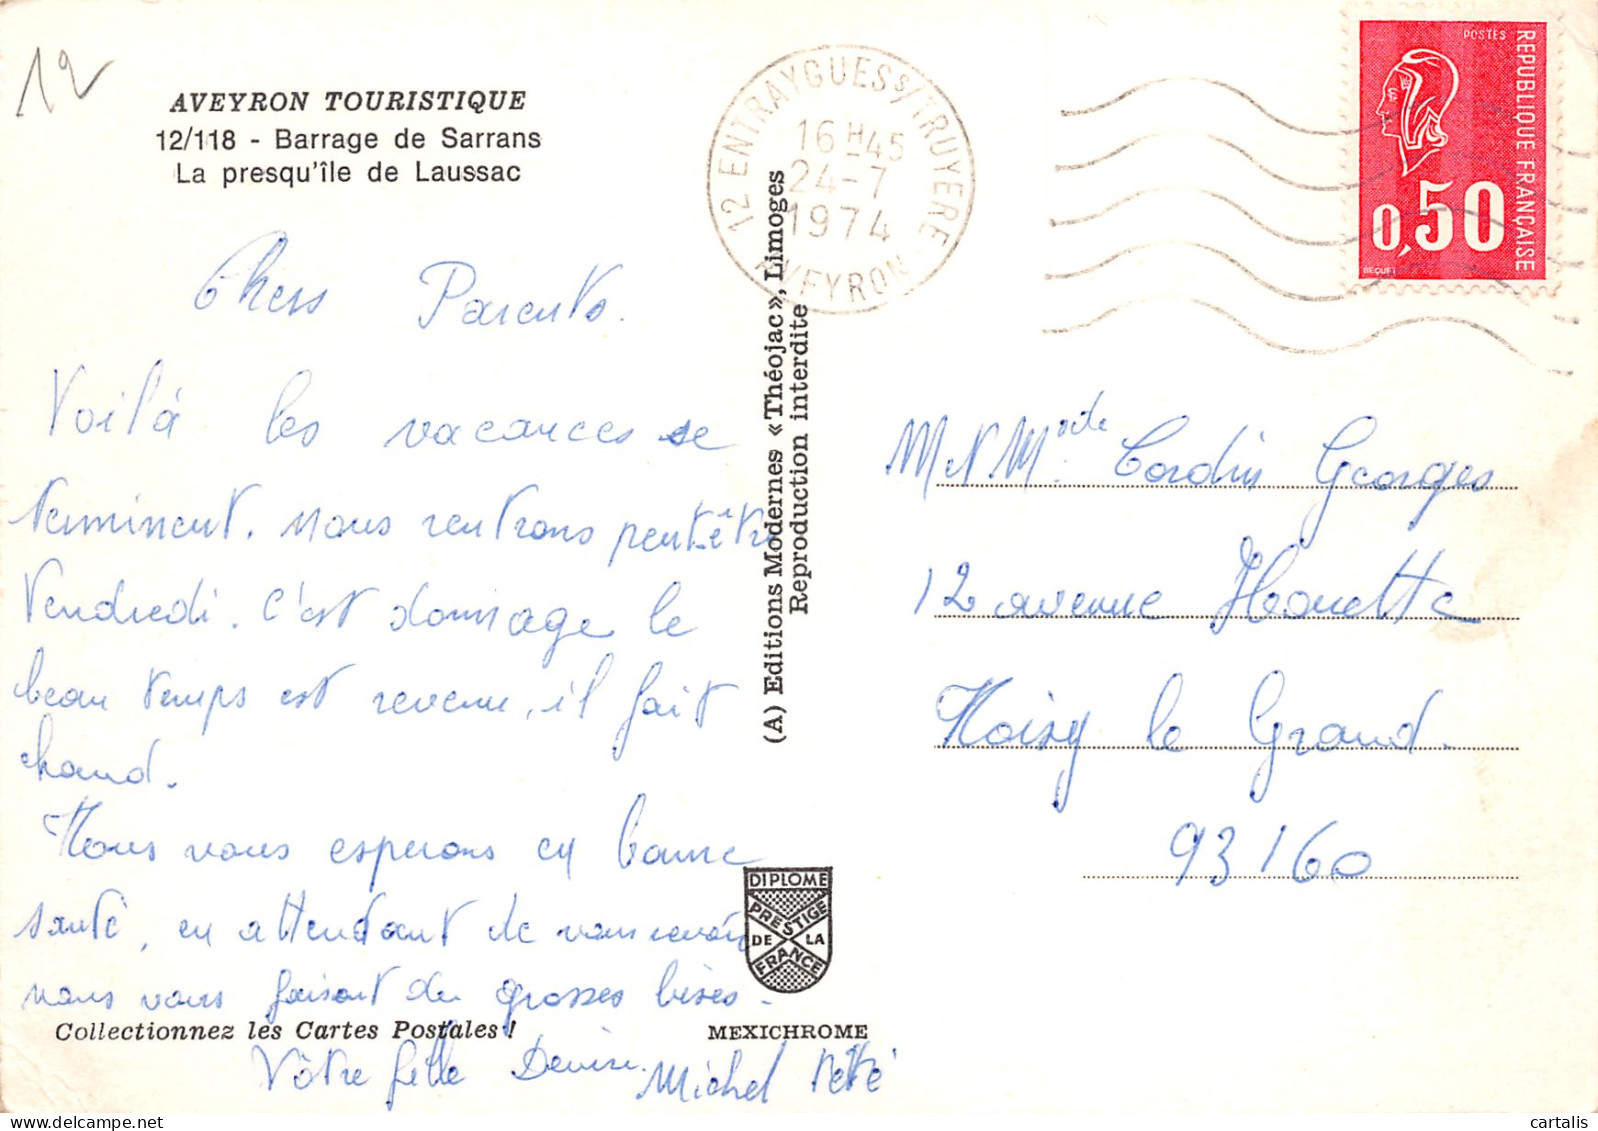 12
AVEYRON TOURISTIQUE
12/118 - Barrage de Sarrans
La presqu'île de Laussac
Chers Parents.
Voilà les vacances se
terminent. nous rentrons peut-être
Vendredi. C'est domage le
beau temps est revenu, il fait
chaud.
Nous vous esperons en bonne
santé, en attendant de vous revoir
nous vous faisont de grosses bises.
Vôtre fille Denise. Michel
Collectionnez les Cartes Postales !
MEXICHROME
DIPLOME
PRESTIGE
DE LA
FRANCE
(A) Editions Modernes «Théojac», Limoges
Reproduction interdite
12 ENTRAYGUES S/TRUYERE
16 H 45
24-7
1974
AVEYRON
POSTES
REPUBLIQUE FRANÇAISE
0,50
BEQUET
Georges
12 avenue
Noisy le Grand.
93160
cartalis.com